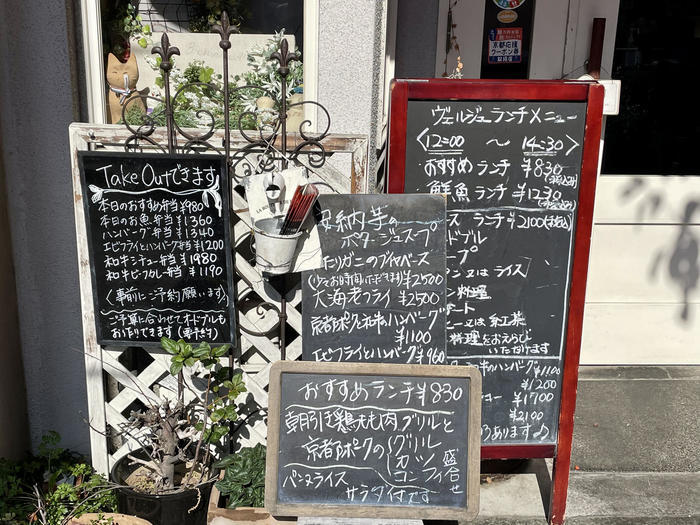 Take Outできます
本日のおすすめ弁当 ¥980
本日のお魚弁当 ¥1360
ハンバーグ弁当 ¥1340
エビフライとハンバーグ弁当 ¥1200
和牛シチュー弁当 ¥1980
和牛ビーフカレー弁当 ¥1190
〈事前にご予約願います〉
ご予算に合わせてオードブルも
お作りできます(要予約)
安納芋の
ポタージュスープ
ワタリガニのブイヤベース
(少々お時間いただきます) ¥2500
大海老フライ ¥2500
京都ポークと和牛のハンバーグ
¥1100
エビフライとハンバーグ ¥960
ヴェルジュランチメニュー
〈12=00 〜 14=30〉
おすすめランチ ¥830
(税込み)
鮮魚ランチ ¥1230
(税込み)
ース ランチ ¥2100(税込)
ードブル
ープ
ン 又は ライス
料理
ート
ー又は 紅茶
料理をおえらび
いただけます
牛のハンバーグ ¥1100
¥1200
ュー ¥1700
¥2100
あります♪
おすすめランチ ¥830
朝引き鶏もも肉グリルと
京都ポークの
グリル
カツ
コンフィ
盛合せ
パン又ライス
サラダ付です
京都応援
クーポン券
取扱店